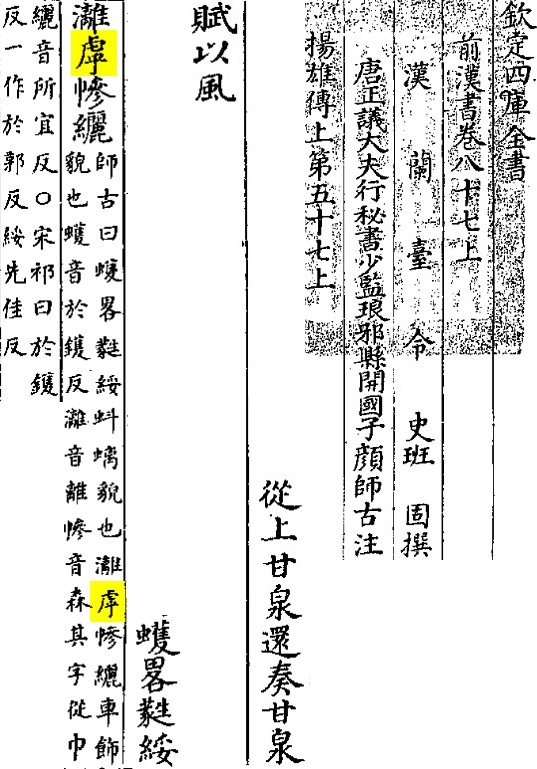 欽定四庫全書
前漢書卷八十七上
漢蘭臺令史班固撰
唐正議大夫行秘書少監琅邪縣開國子顏師古注
揚雄傳上第五十七上
從上甘泉還奏甘泉
賦以風
蠖畧蕤綏
灕虖幓纚
師古曰蠖畧蕤綏蚪螭貌也灕虖幓纚車飾
貌也蠖音於鑊反灕音離幓音森其字從巾
纚音所宜反○宋祁曰於鑊
反一作於郭反綏先佳反